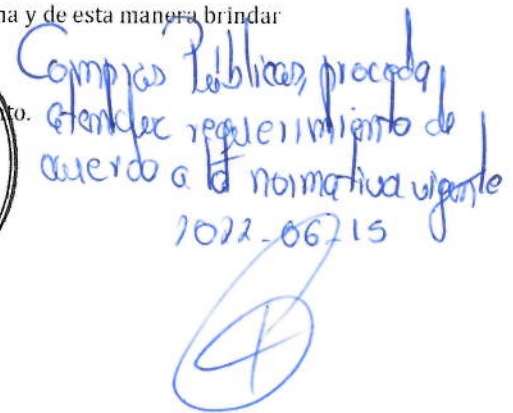 na y de esta manera brindar
Compras Públicas, proceda
to. atender requerimiento de
acuerdo a la normativa vigente
2022-06-15